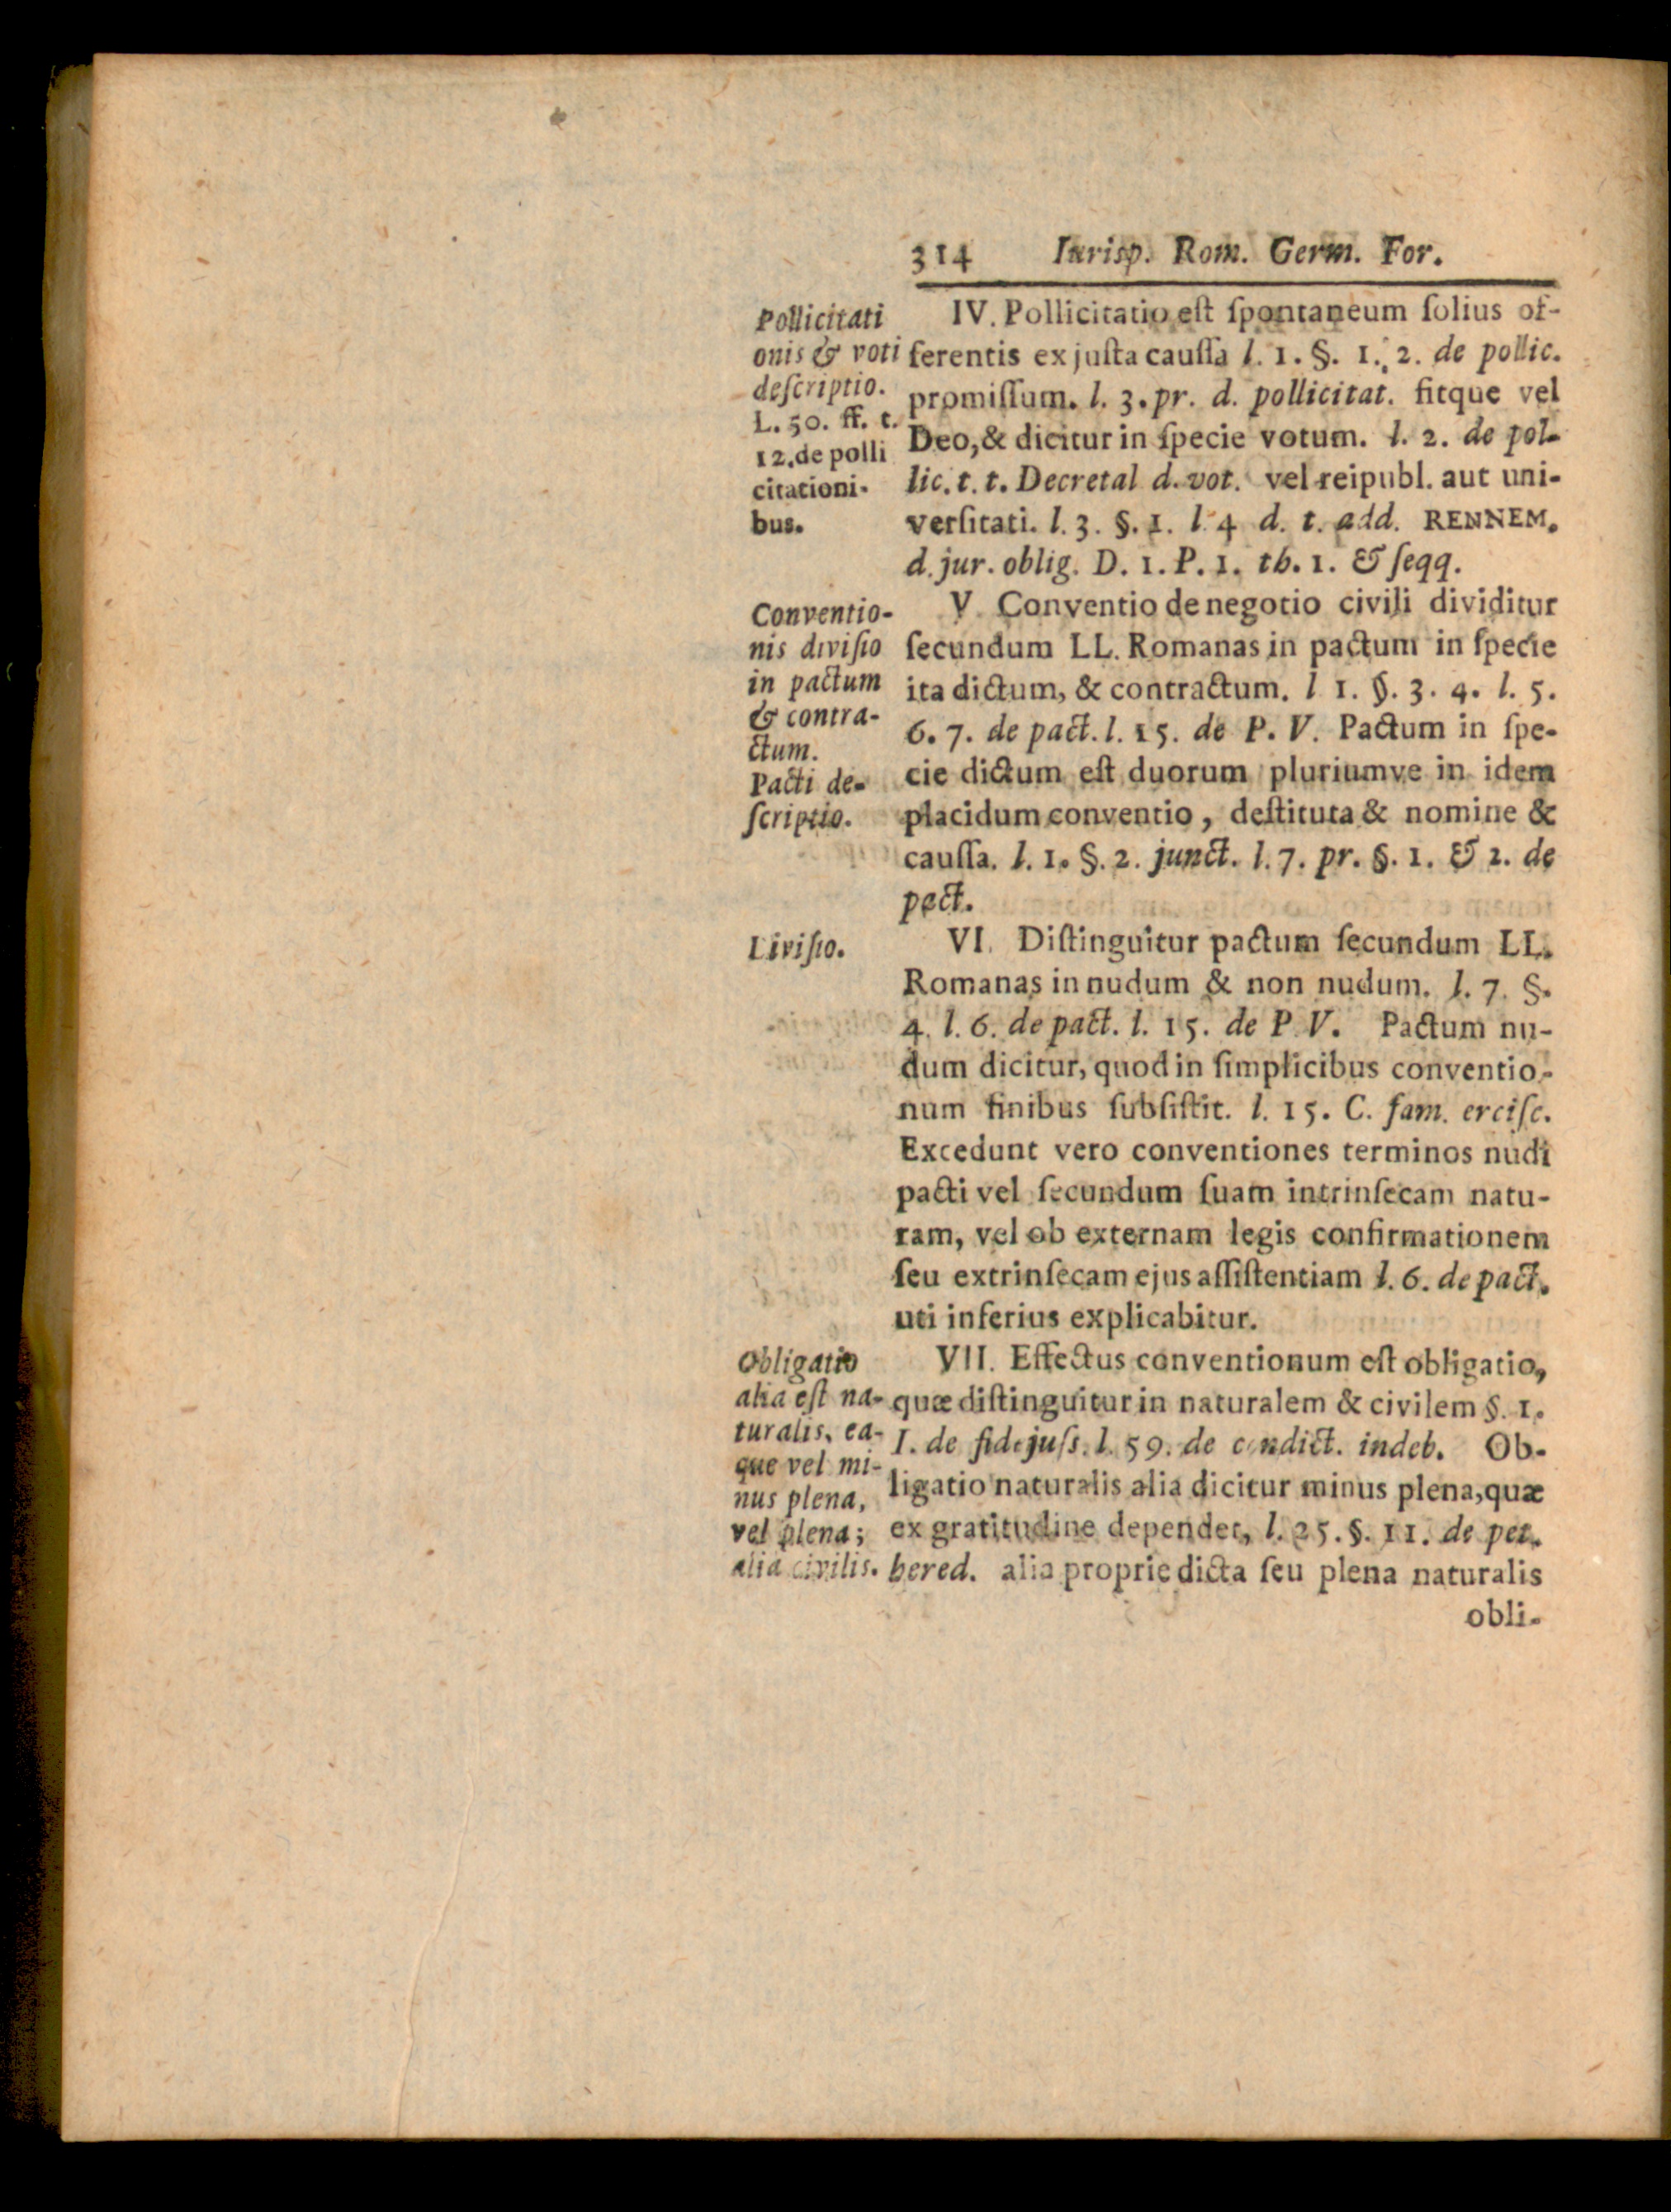 314 Iurisp. Rom. Germ. For.
Pollicitati
onis & voti
deſcriptio.
L. 50. ff. t.
12. de polli
citationi-
bus.
IV. Pollicitatio eſt ſpontaneum ſolius of-
ferentis ex juſta cauſſa l. 1. §. 1. 2. de pollic.
promiſſum. l. 3. pr. d. pollicitat. fitque vel
Deo, & dicitur in ſpecie votum. l. 2. de pol-
lic. t. t. Decretal d. vot. vel reipubl. aut uni-
verſitati. l. 3. §. 1. l 4 d. t. add. RENNEM.
d. jur. oblig. D. 1. P. 1. th. 1. & ſeqq.
Conventio-
nis diviſio
in pactum
& contra-
ctum.
Pacti de-
ſcriptio.
V. Conventio de negotio civili dividitur
ſecundum LL. Romanas in pactum in ſpecie
ita dictum, & contractum. l 1. §. 3. 4. l. 5.
6. 7. de pact. l. 15. de P. V. Pactum in ſpe-
cie dictum eſt duorum pluriumve in idem
placidum conventio, deſtituta & nomine &
cauſſa. l. 1. §. 2. junct. l. 7. pr. §. 1. & 2. de
pact.
Liviſio.
VI. Diſtinguitur pactum ſecundum LL.
Romanas in nudum & non nudum. l. 7. §.
4. l. 6. de pact. l. 15. de P V. Pactum nu-
dum dicitur, quod in ſimplicibus conventio-
num finibus ſubſiſtit. l. 15. C. fam. erciſc.
Excedunt vero conventiones terminos nudi
pacti vel ſecundum ſuam intrinſecam natu-
ram, vel ob externam legis confirmationem
ſeu extrinſecam ejus aſſiſtentiam l. 6. de pact.
uti inferius explicabitur.
Obligatio
alia eſt na-
turalis, ea-
que vel mi-
nus plena,
vel plena;
alia civilis.
VII. Effectus conventionum eſt obligatio,
quæ diſtinguitur in naturalem & civilem §. 1.
I. de fidejuſs. l. 59. de condict. indeb. Ob-
ligatio naturalis alia dicitur minus plena, quæ
ex gratitudine dependet, l. 25. §. 11. de pet.
hered. alia proprie dicta ſeu plena naturalis
obli-